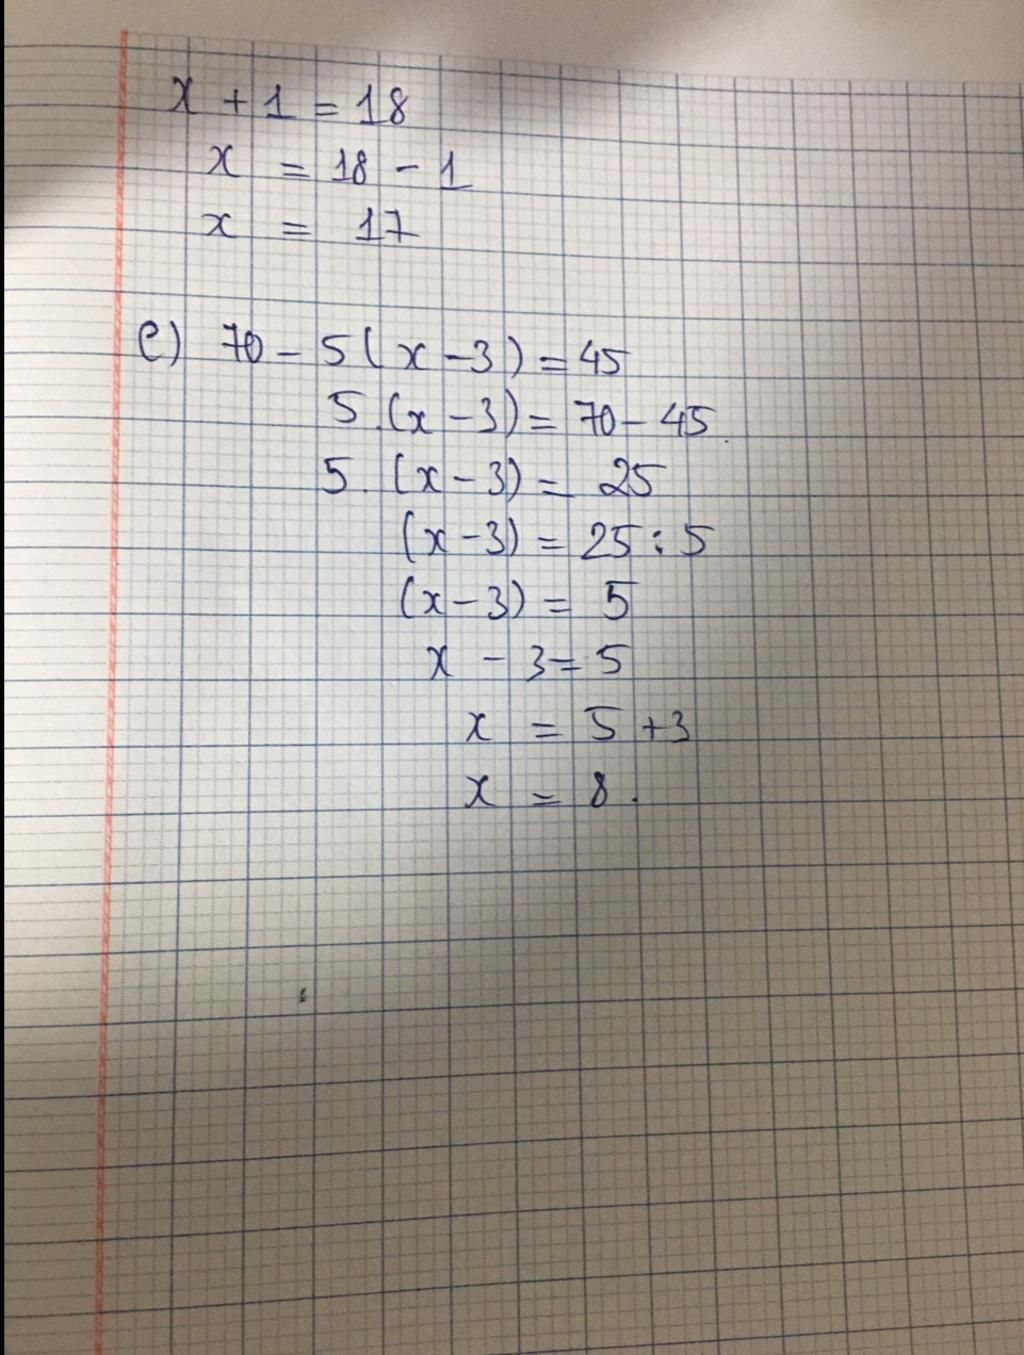 x + 1 = 18
x = 18 - 1
x = 17
e) 70 - 5(x - 3) = 45
5.(x - 3) = 70 - 45.
5. (x - 3) = 25
(x - 3) = 25 : 5
(x - 3) = 5
x - 3 = 5
x = 5 + 3
x = 8.